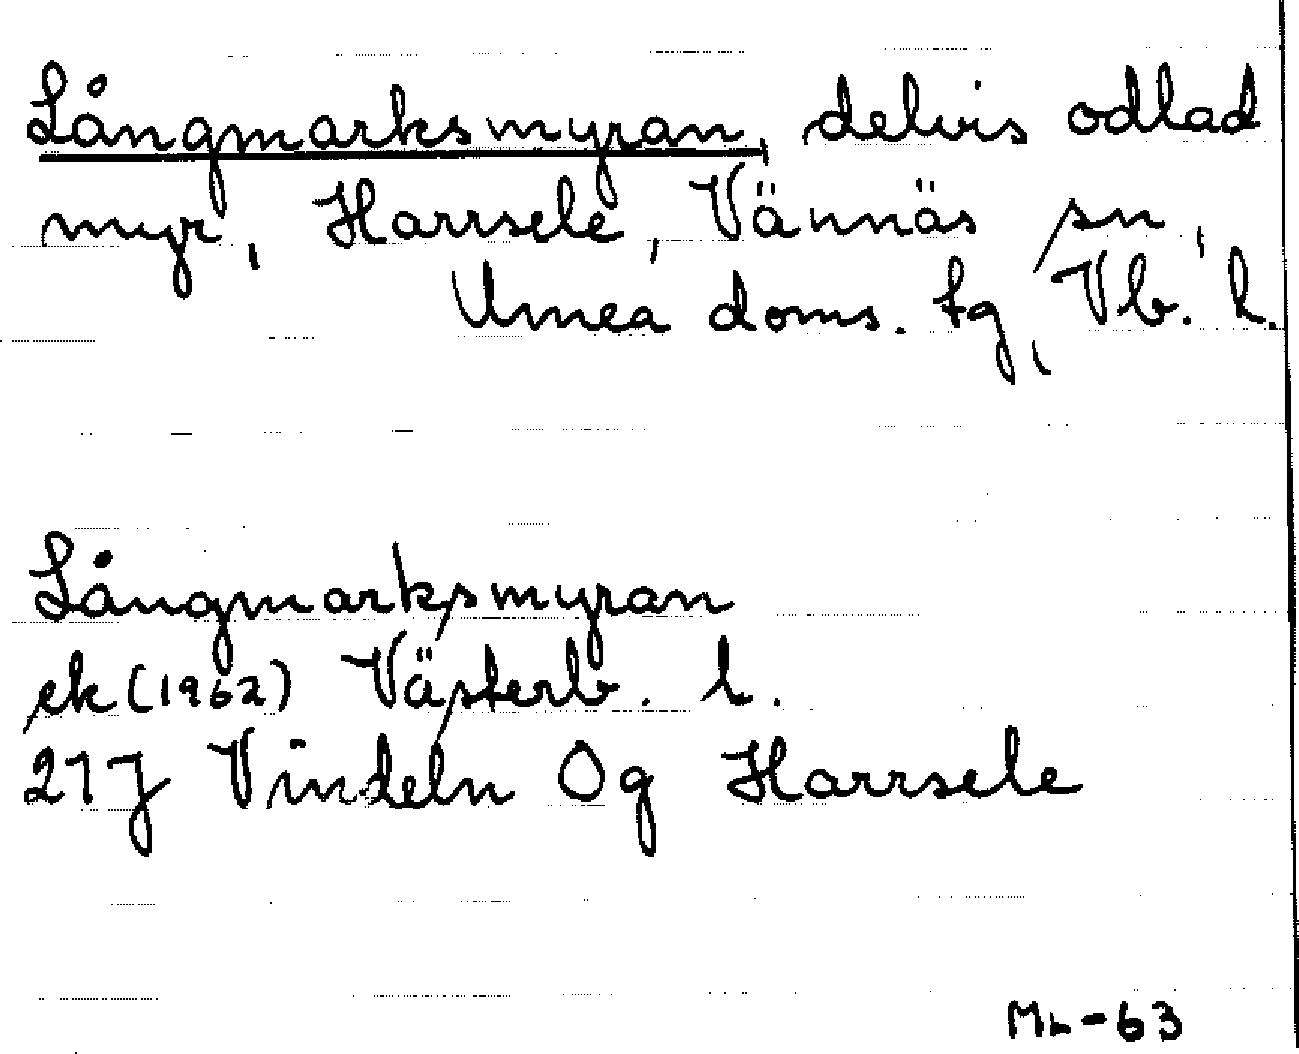 Långmarksmyran, delvis odlad
myr, Harrsele, Vännäs sn,
Umeå doms. tg, Vb. l.
Långmarksmyran
ek (1962) Västerb. l.
21J Vindeln Og Harrsele
ML-63